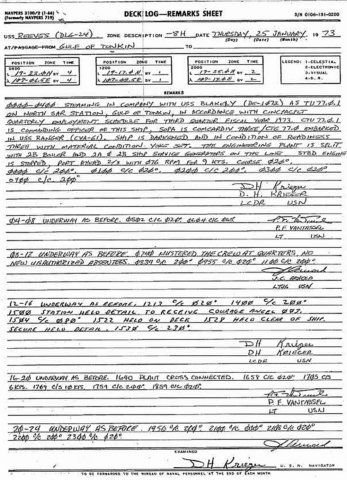 NAVPERS 3100/2 (1-66)
(Formerly NAVPERS 719)
DECK LOG—REMARKS SHEET
S/N 0106-191-0200
USS REEVES (DLG-24) ZONE DESCRIPTION -8H DATE THURSDAY, 25 JANUARY, 19 73
(Day) (Date) (Month)
AT/PASSAGE FROM GULF OF TONKIN TO
POSITION ZONE TIME POSITION ZONE TIME POSITION ZONE TIME LEGEND: 1-CELESTIAL
0800 1200 2000 2-ELECTRONIC
3-VISUAL
4-D.R.
REMARKS
0000-0400 STEAMING IN COMPANY WITH USS BLAKELY (DE-1072) AS TU 77.0.1
ON NORTH SAR STATION, GULF OF TONKIN, IN ACCORDANCE WITH CINCPACFLT
QUARTERLY EMPLOYMENT SCHEDULE FOR THIRD QUARTER FISCAL YEAR 1973. CTU 77.0.1
IS COMMANDING OFFICER OF THIS SHIP. SOPA IS COMMANDER EMBARKED
IN USS RANGER (CVA-61). SHIP IS DARKENED AND IN CONDITION OF READINESS
THREE WITH MATERIAL CONDITION YOKE SET. THE ENGINEERING PLANT IS SPLIT
WITH 2B BOILER AND 2A & 2B SHIP SERVICE GENERATORS ON THE LINE. STBD ENGINE
IS STOPPED, PORT AHEAD 2/3 WITH 076 RPM FOR 9 KTS. COURSE 020°.
0000 C/C 200°. 0100 C/C 020°. 0200 C/C 200°. 0300 C/C 020°
0400 C/C 200°
DH Krieger
D. H. KRIEGER
LCDR USN
04-08 UNDERWAY AS BEFORE. 0502 C/C 020°
P.F. VANTASSEL
LT USN
08-12 UNDERWAY AS BEFORE. 0740 MUSTERED THE CREW AT QUARTERS, NO
NEW UNAUTHORIZED ABSENTEES. 0839 C/C 200° 0955 C/C 020° 1100 C/C 200°
LTJG USN
12-16 UNDERWAY AS BEFORE. 1212 C/C 020° 1400 C/C 200°
1500 STATION HELO DETAIL TO RECEIVE COURAGE ANGEL 007.
1504 C/C 080° 1522 HELO ON DECK 1528 HELO CLEAR OF SHIP.
SECURE HELO DETAIL. 1530 C/C 230°.
DH Krieger
DH KRIEGER
LCDR USN
16-20 UNDERWAY AS BEFORE. 1640 PLANT CROSS CONNECTED. 1659 C/C 020° 1705 C/S
P.F. VANTASSEL
LT USN
20-24 UNDERWAY AS BEFORE. 1950 C/C 200° 2100 C/C 000°
2200 C/C 200° 2300 C/C 020°
EXAMINED
DH Krieger U. S. N. NAVIGATOR
TO BE FORWARDED TO THE BUREAU OF NAVAL PERSONNEL AT THE END OF EACH MONTH